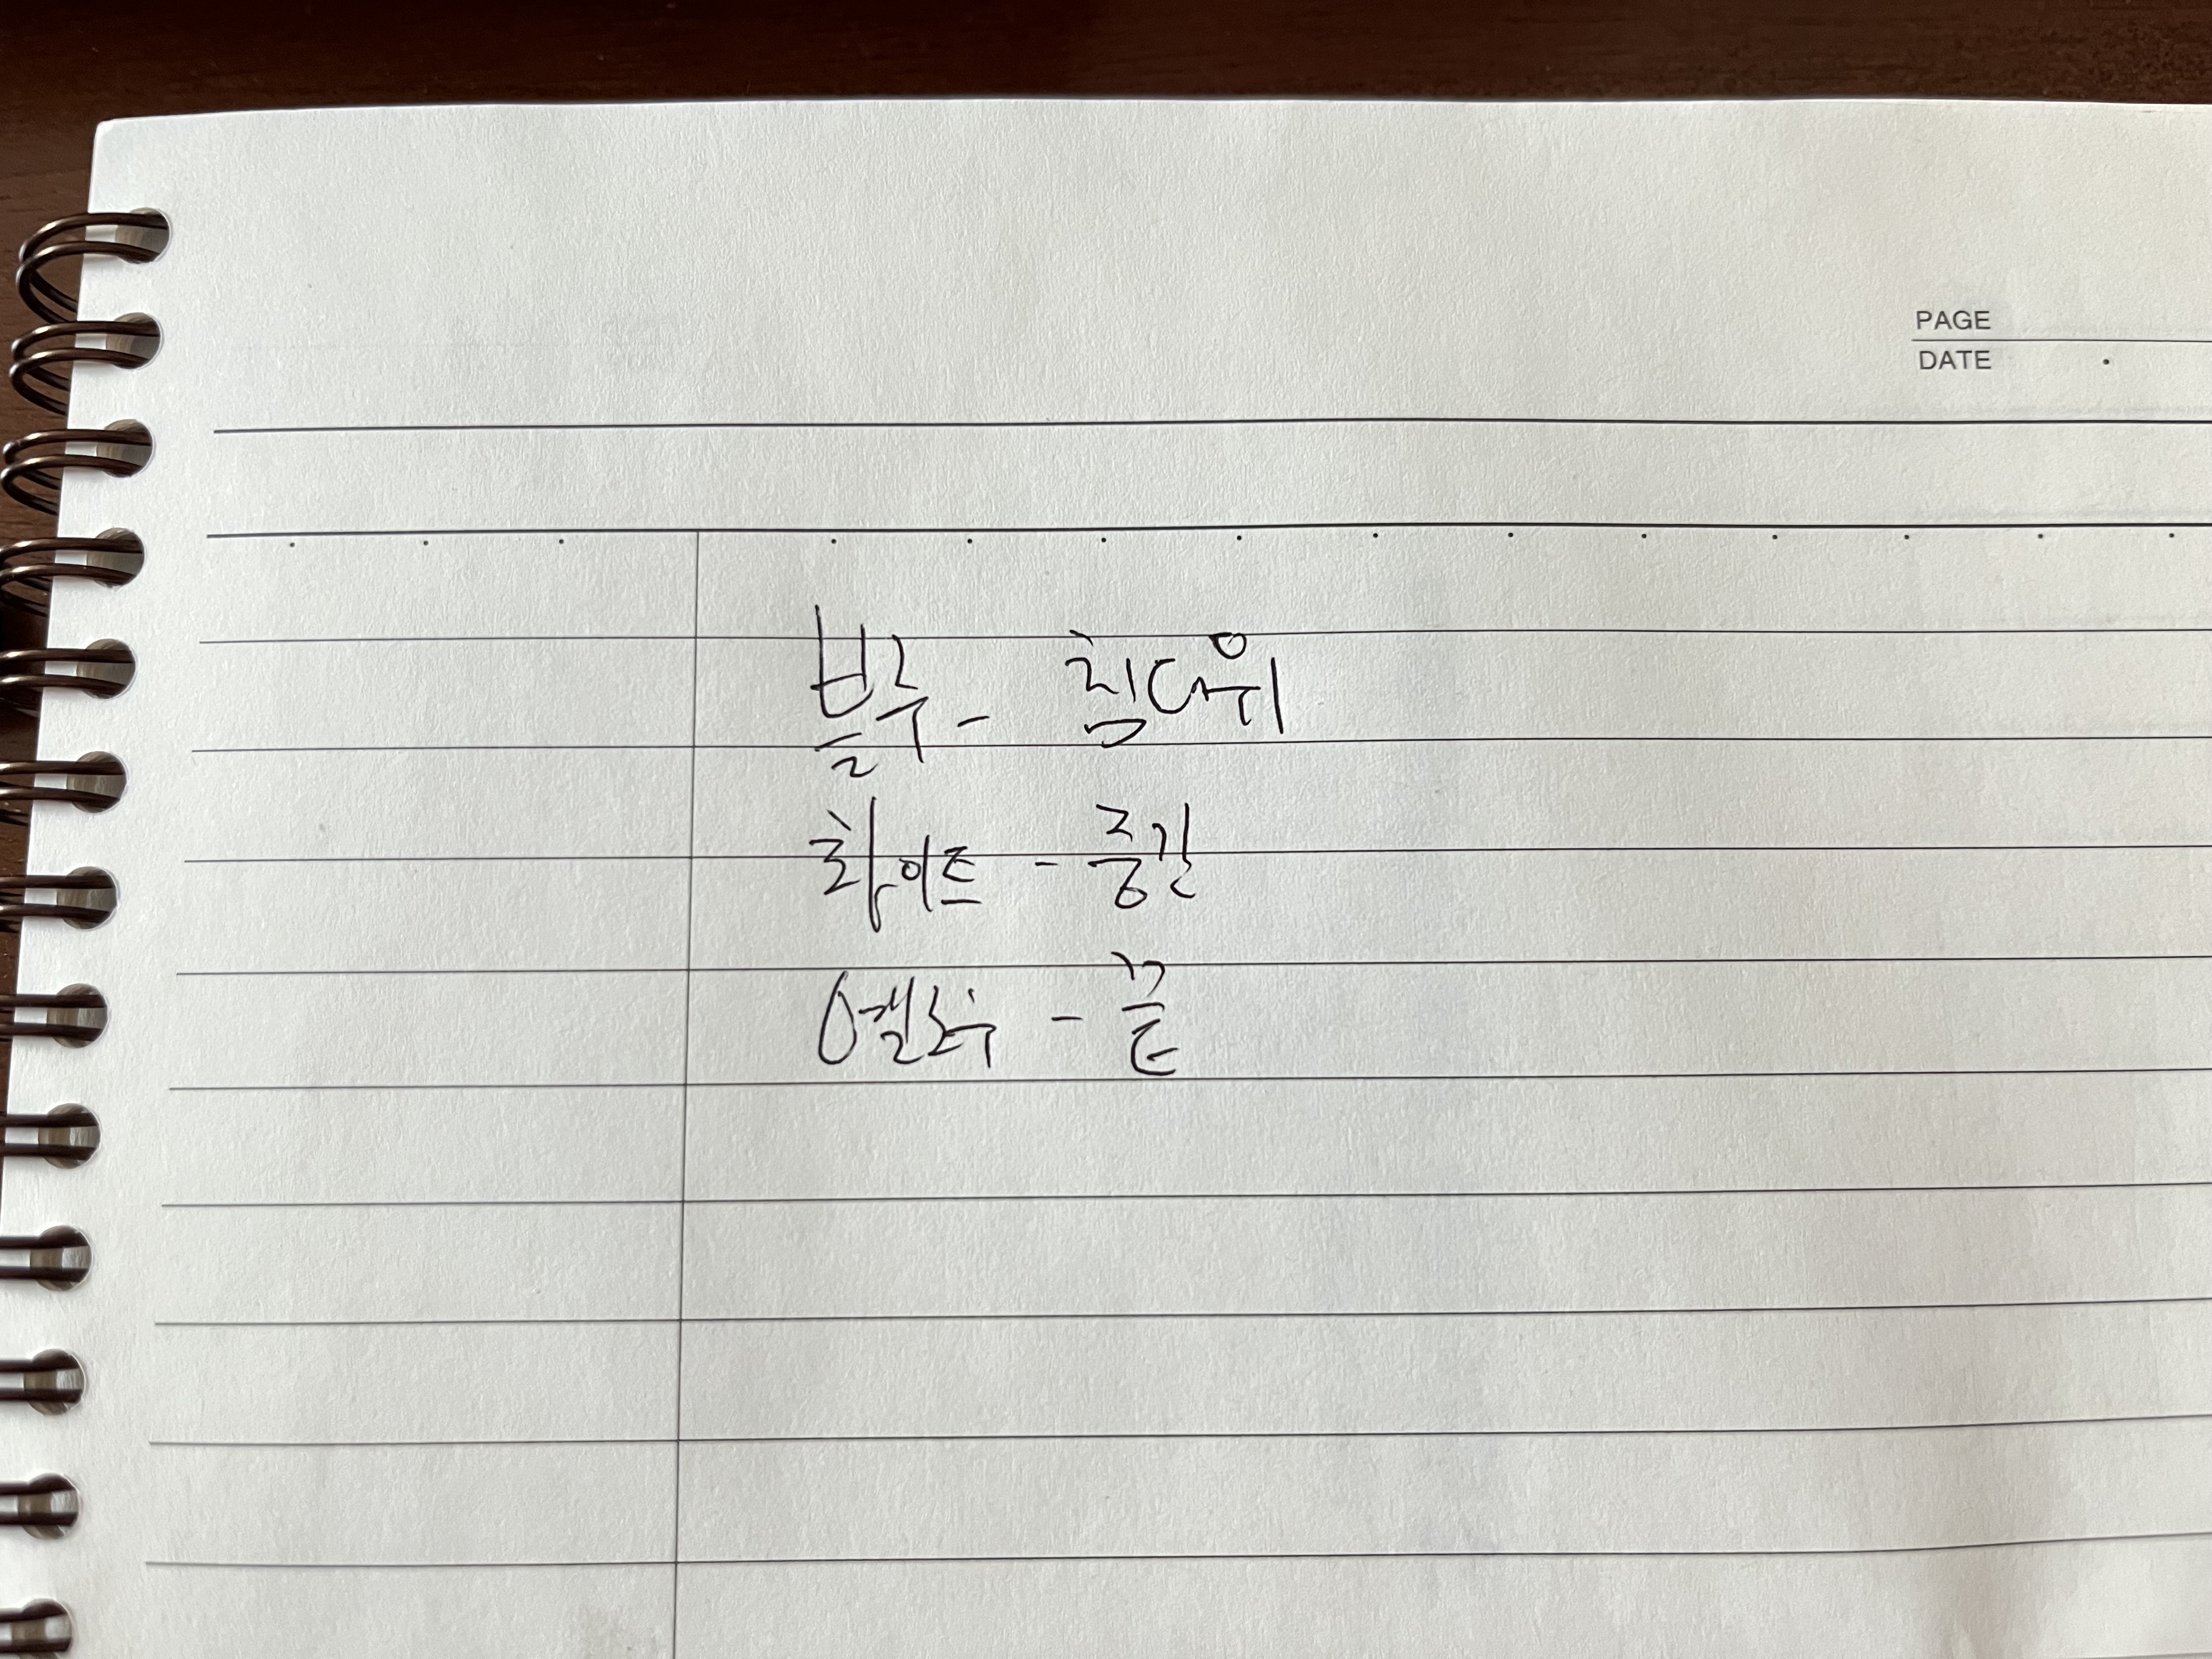 PAGE
DATE
블루 - 침다위
화이트 - 중간
옐로우 - 끝